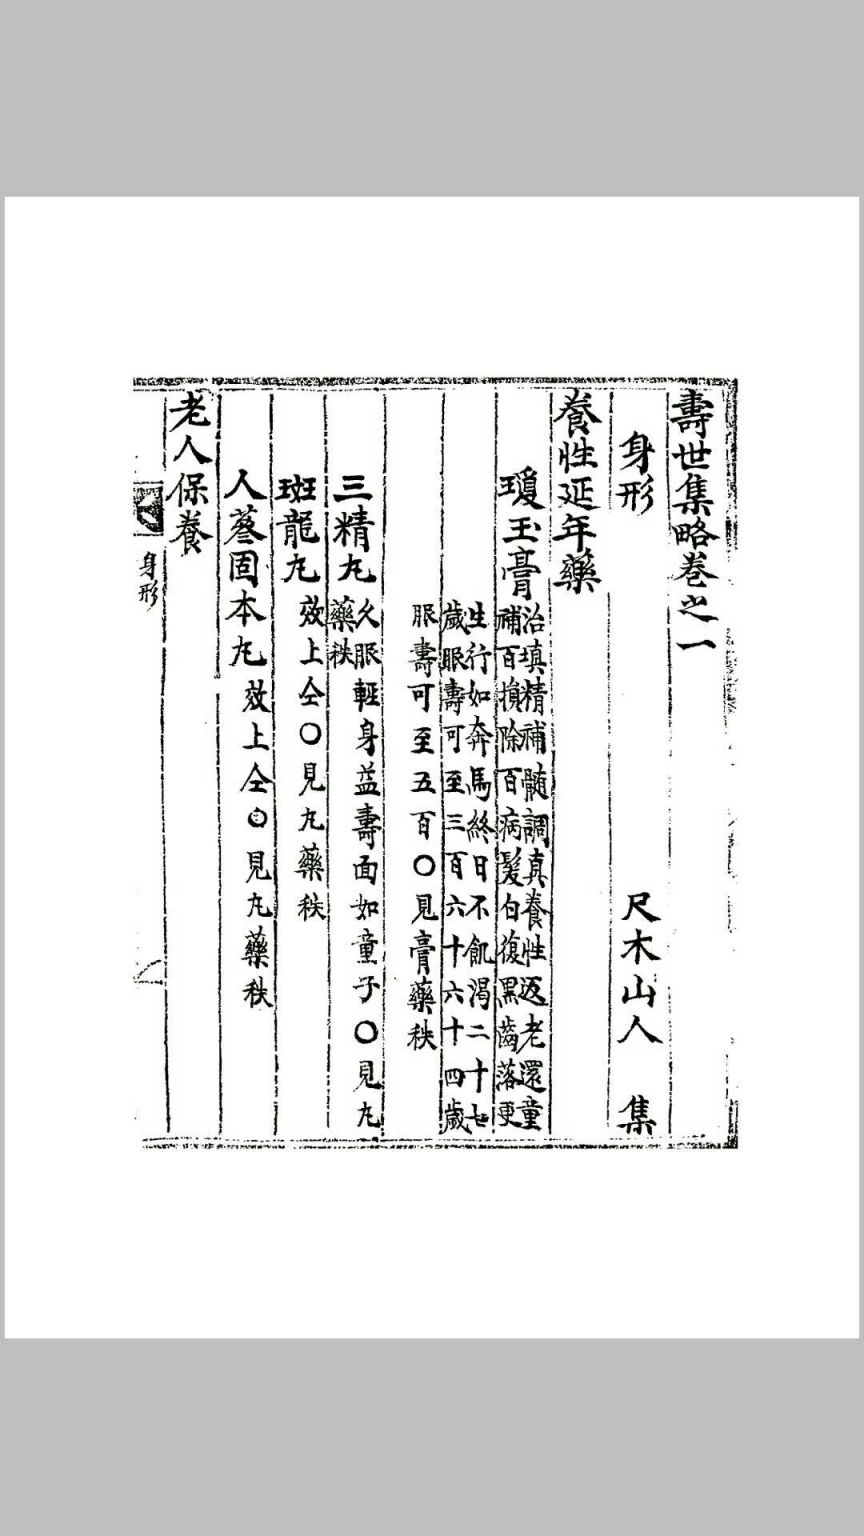 壽世集略卷之一
身形 尺木山人 集
養性延年藥
瓊玉膏 治填精補髄調真養性返老還童
補百損除百病髮白復黑齒落更
生行如奔馬終日不飢渴二十七
歲服壽可至三百六十六十四歲
服壽可至五百〇見膏藥秩
三精丸 久服輕身益壽面如童子〇見丸
藥秩
斑龍丸 效上仝〇見丸藥秩
人蔘固本丸 效上仝〇見丸藥秩
老人保養
身形